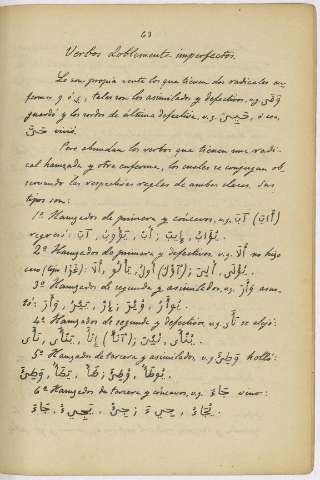 63
Verbos doblemente imperfectos.
Lo son propiamente los que tienen dos radicales en-
fermas y tales son los asimilados y defectivos, v.g. وَقَى
guardó y los sordos de última defectiva, v.g. حَيِىَ, ó con
حَىَّ vivió.
Pero abundan los verbos que tienen una radi-
cal hamzada y otra enferma, los cuales se conjugan ob-
servando las respectivas reglas de ambas clases. Sus
tipos son:
1º Hamzados de primera y cóncavos, v.g. آبَ (أَوَبَ)
regresó: آبَ, يَؤُوبُ, أُبْ, إِيبَ, يُؤَابُ.
2º Hamzados de primera y defectivos, v.g. أَلَا no hizo
caso (tipo غَزَا): أَلَا, يَأْلُو, أُولُ (اُؤْلُ), أُلِىَ, يُؤْلَى.
3º Hamzados de segunda y asimilados, v.g. وَأَرَ asus-
tó: وَأَرَ, يَئِرُ, إِرْ, وُئِرَ, يُوأَرُ.
4º Hamzados de segunda y defectivos, v.g. نَأَى se alejó:
نَأَى, يَنْأَى, إِنْأَ, نُئِىَ, يُنْأَى.
5º Hamzados de tercera y asimilados, v.g. وَطِئَ holló:
وَطِئَ, يَطَأُ, طَأْ, وُطِئَ, يُوطَأُ.
6º Hamzados de tercera y cóncavos, v.g. جَاءَ vino:
جَاءَ, يَجِىءُ, جِئْ, جِىءَ, يُجَاءُ.